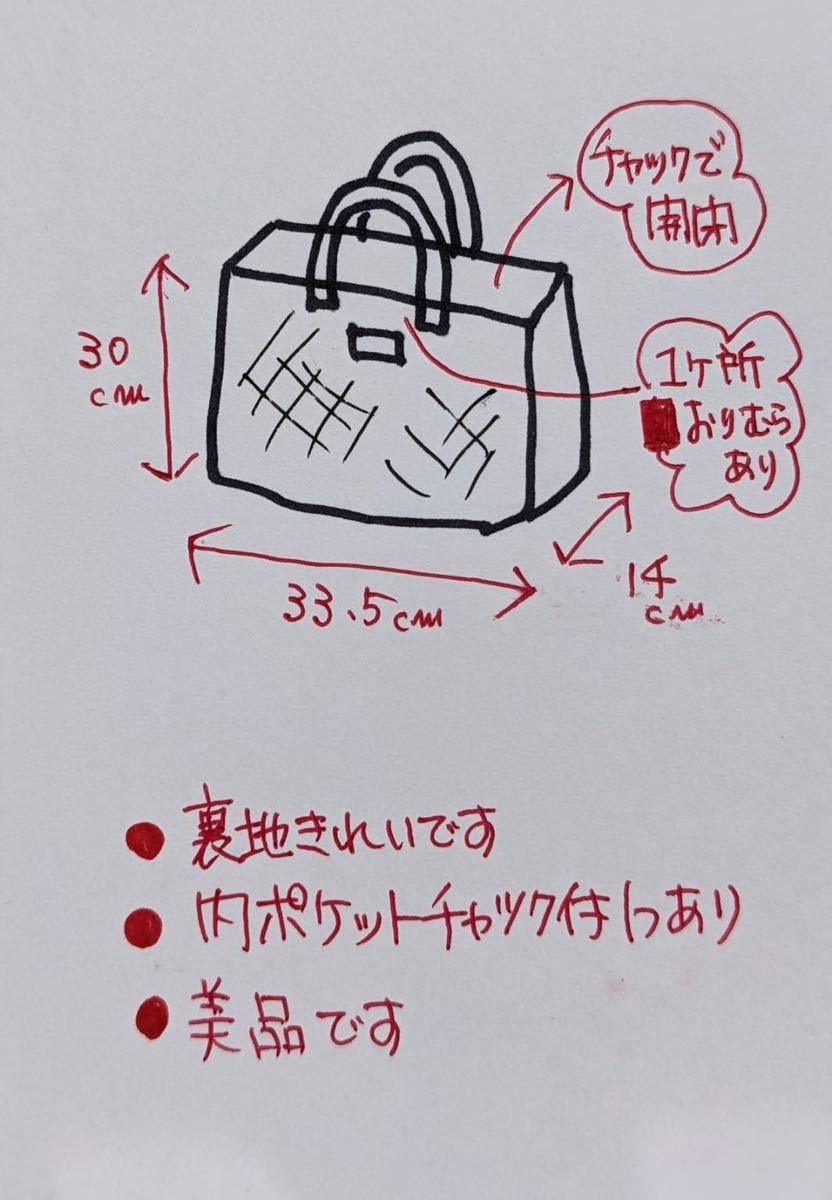 チャックで
開閉
30
cm
1ケ所
おりむら
あり
14
cm
33.5cm
● 裏地きれいです
● 内ポケットチャック付1つあり
● 美品です